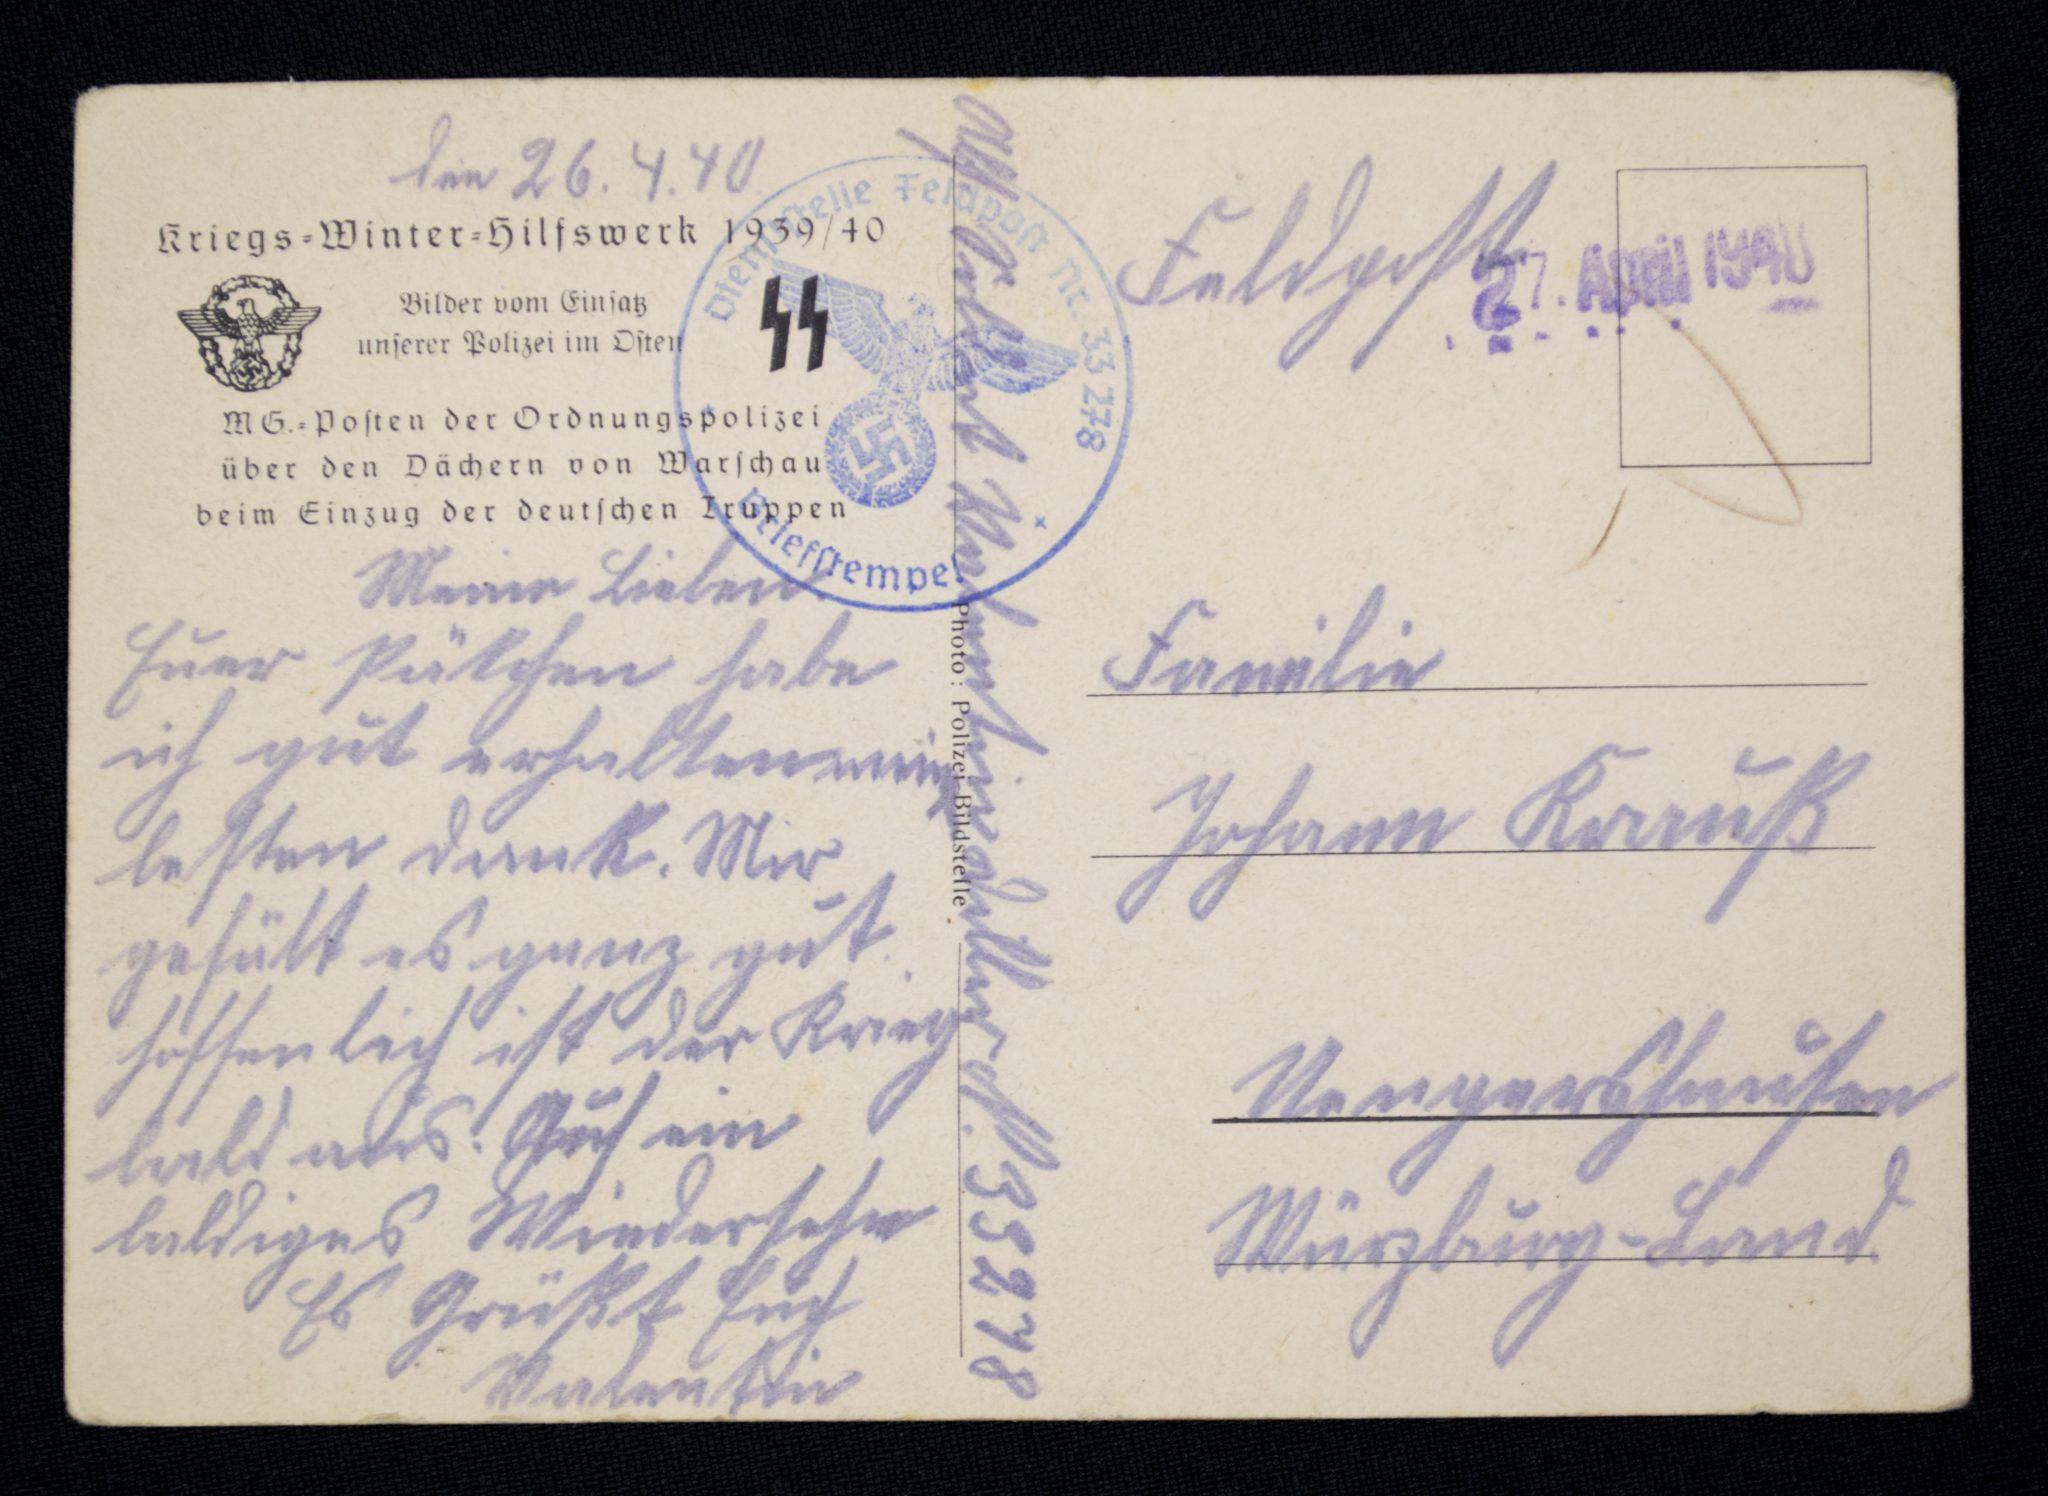 den 26.4.40
Kriegs-Winter-Hilfswerk 1939/40
Bilder vom Einsatz
unserer Polizei im Osten
MG.-Posten der Ordnungspolizei
über den Dächern von Warschau
beim Einzug der deutschen Truppen
Meine Lieben.
Euer Päkchen habe
ich gut erhalten meinen
besten dank. Mir
gefält es ganz gut.
hoffenlich ist der Krieg
bald aus. Auf ein
baldiges Wiedersehn
Es Grüßt Euch
Valentin
Dienststelle Feldpost Nr. 33 278
Briefstempel
Photo: Polizei-Bildstelle
Valentin
33278
Feldpost
27. April 1940
Familie
Johann Krauß
Uengershausen
Würzburg-Land